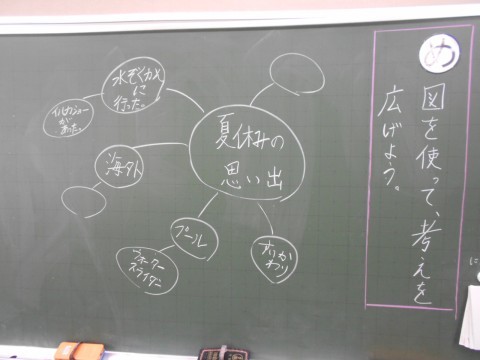 め
図を使って、考えを
広げよう。
夏休みの
思い出
水ぞくかんに
行った。
イルカショー
があった。
海外
プール
ウォーター
スライダー